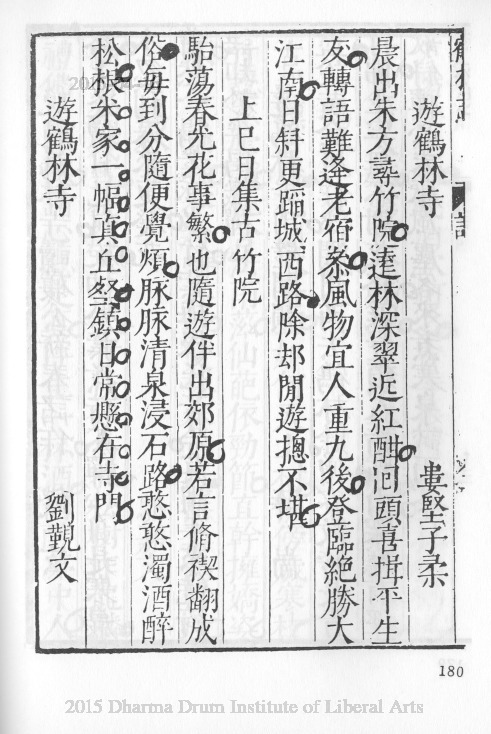 遊鶴林寺 婁堅子柔
晨出朱方尋竹院遠林深翠近紅酣回頭喜揖平生
友轉語難逢老宿叅風物宜人重九後登臨絶勝大
江南日斜更蹋城西路除却閒遊摠不堪
上巳日集古竹院
駘蕩春光花事繁也隨遊伴出郊原若言脩禊翻成
俗每到分隨便覺煩脉脉清泉浸石路憨憨濁酒醉
松根米家一幅真丘壑鎮日常懸在寺門
遊鶴林寺 劉覲文
180
2015 Dharma Drum Institute of Liberal Arts